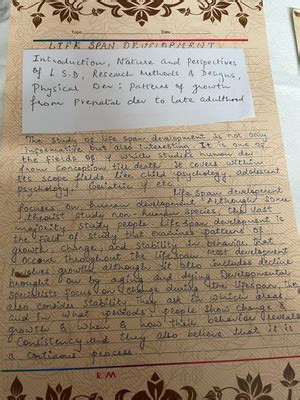 Topic
Date
LIFE SPAN DEVELOPMENT
Introduction, Nature and Perspectives
of L.S.D, Research Methods & Designs,
Physical Dev: Patterns of growth
from Prenatal dev to late adulthood
The study of life span development is not only
informative but also interesting. It is one of
the fields of ψ which studies human dev
from conception till death. It covers within
its scope fields like child psychology, adolescent
psychology, Geriatric ψ etc
Life span development
focuses on human development. Although some
theorist study non-human species, the vast
majority study people. Life span development is
the field of study that examines patterns of
growth, change, and stability in behavior that
occur throughout the lifespan. Most development
involves growth, although it also includes decline
brought on by aging and dying. Developmental
specialists focus on change during the lifespan, they
also consider stability. They ask in which areas
and in what periods people show change &
growth & when & how their behavior reveals
consistency and they also believe that it is
a continous process
R.M